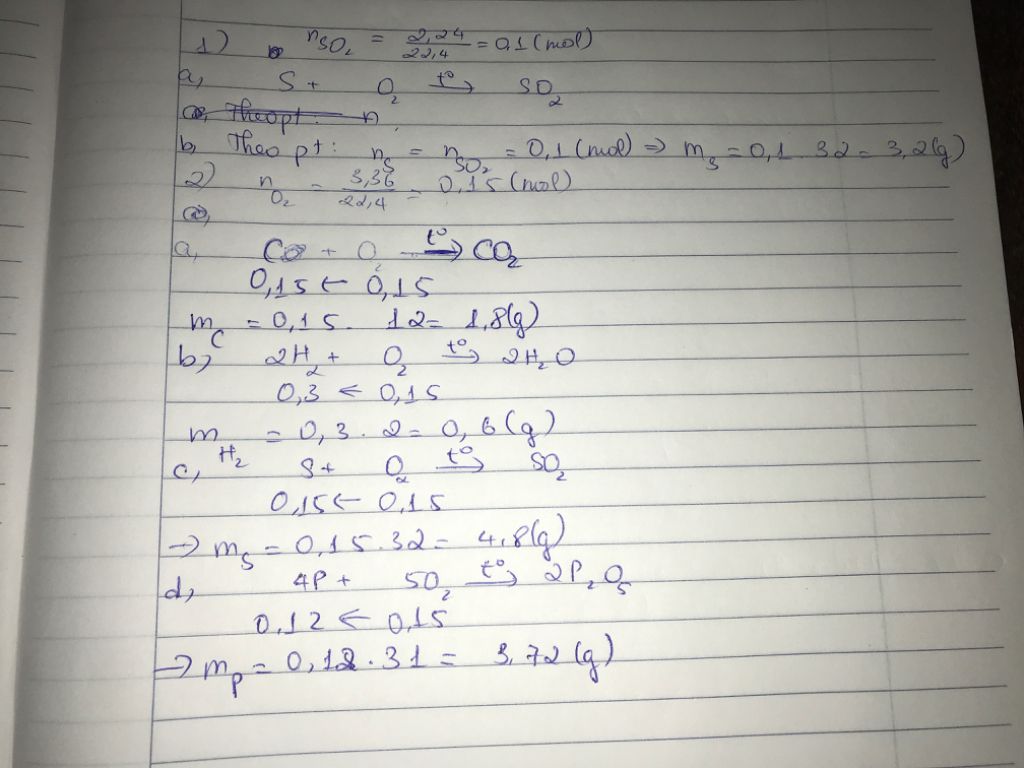 1) nSO₂ = 2,24/22,4 = 0,1 (mol)
a, S + O₂ t°→ SO₂
a, Theo pt: n
b, Theo pt: nS = nSO₂ = 0,1 (mol) ⇒ mS = 0,1 . 32 = 3,2(g)
2) nO₂ = 3,36/22,4 = 0,15 (mol)
a,
a, C + O₂ t°→ CO₂
0,15 ← 0,15
mC = 0,15 . 12 = 1,8(g)
b, 2H₂ + O₂ t°→ 2H₂O
0,3 ← 0,15
mH₂ = 0,3 . 2 = 0,6 (g)
c, S + O₂ t°→ SO₂
0,15 ← 0,15
→ mS = 0,15 . 32 = 4,8(g)
d, 4P + 5O₂ t°→ 2P₂O₅
0,12 ← 0,15
→ mP = 0,12 . 31 = 3,72 (g)